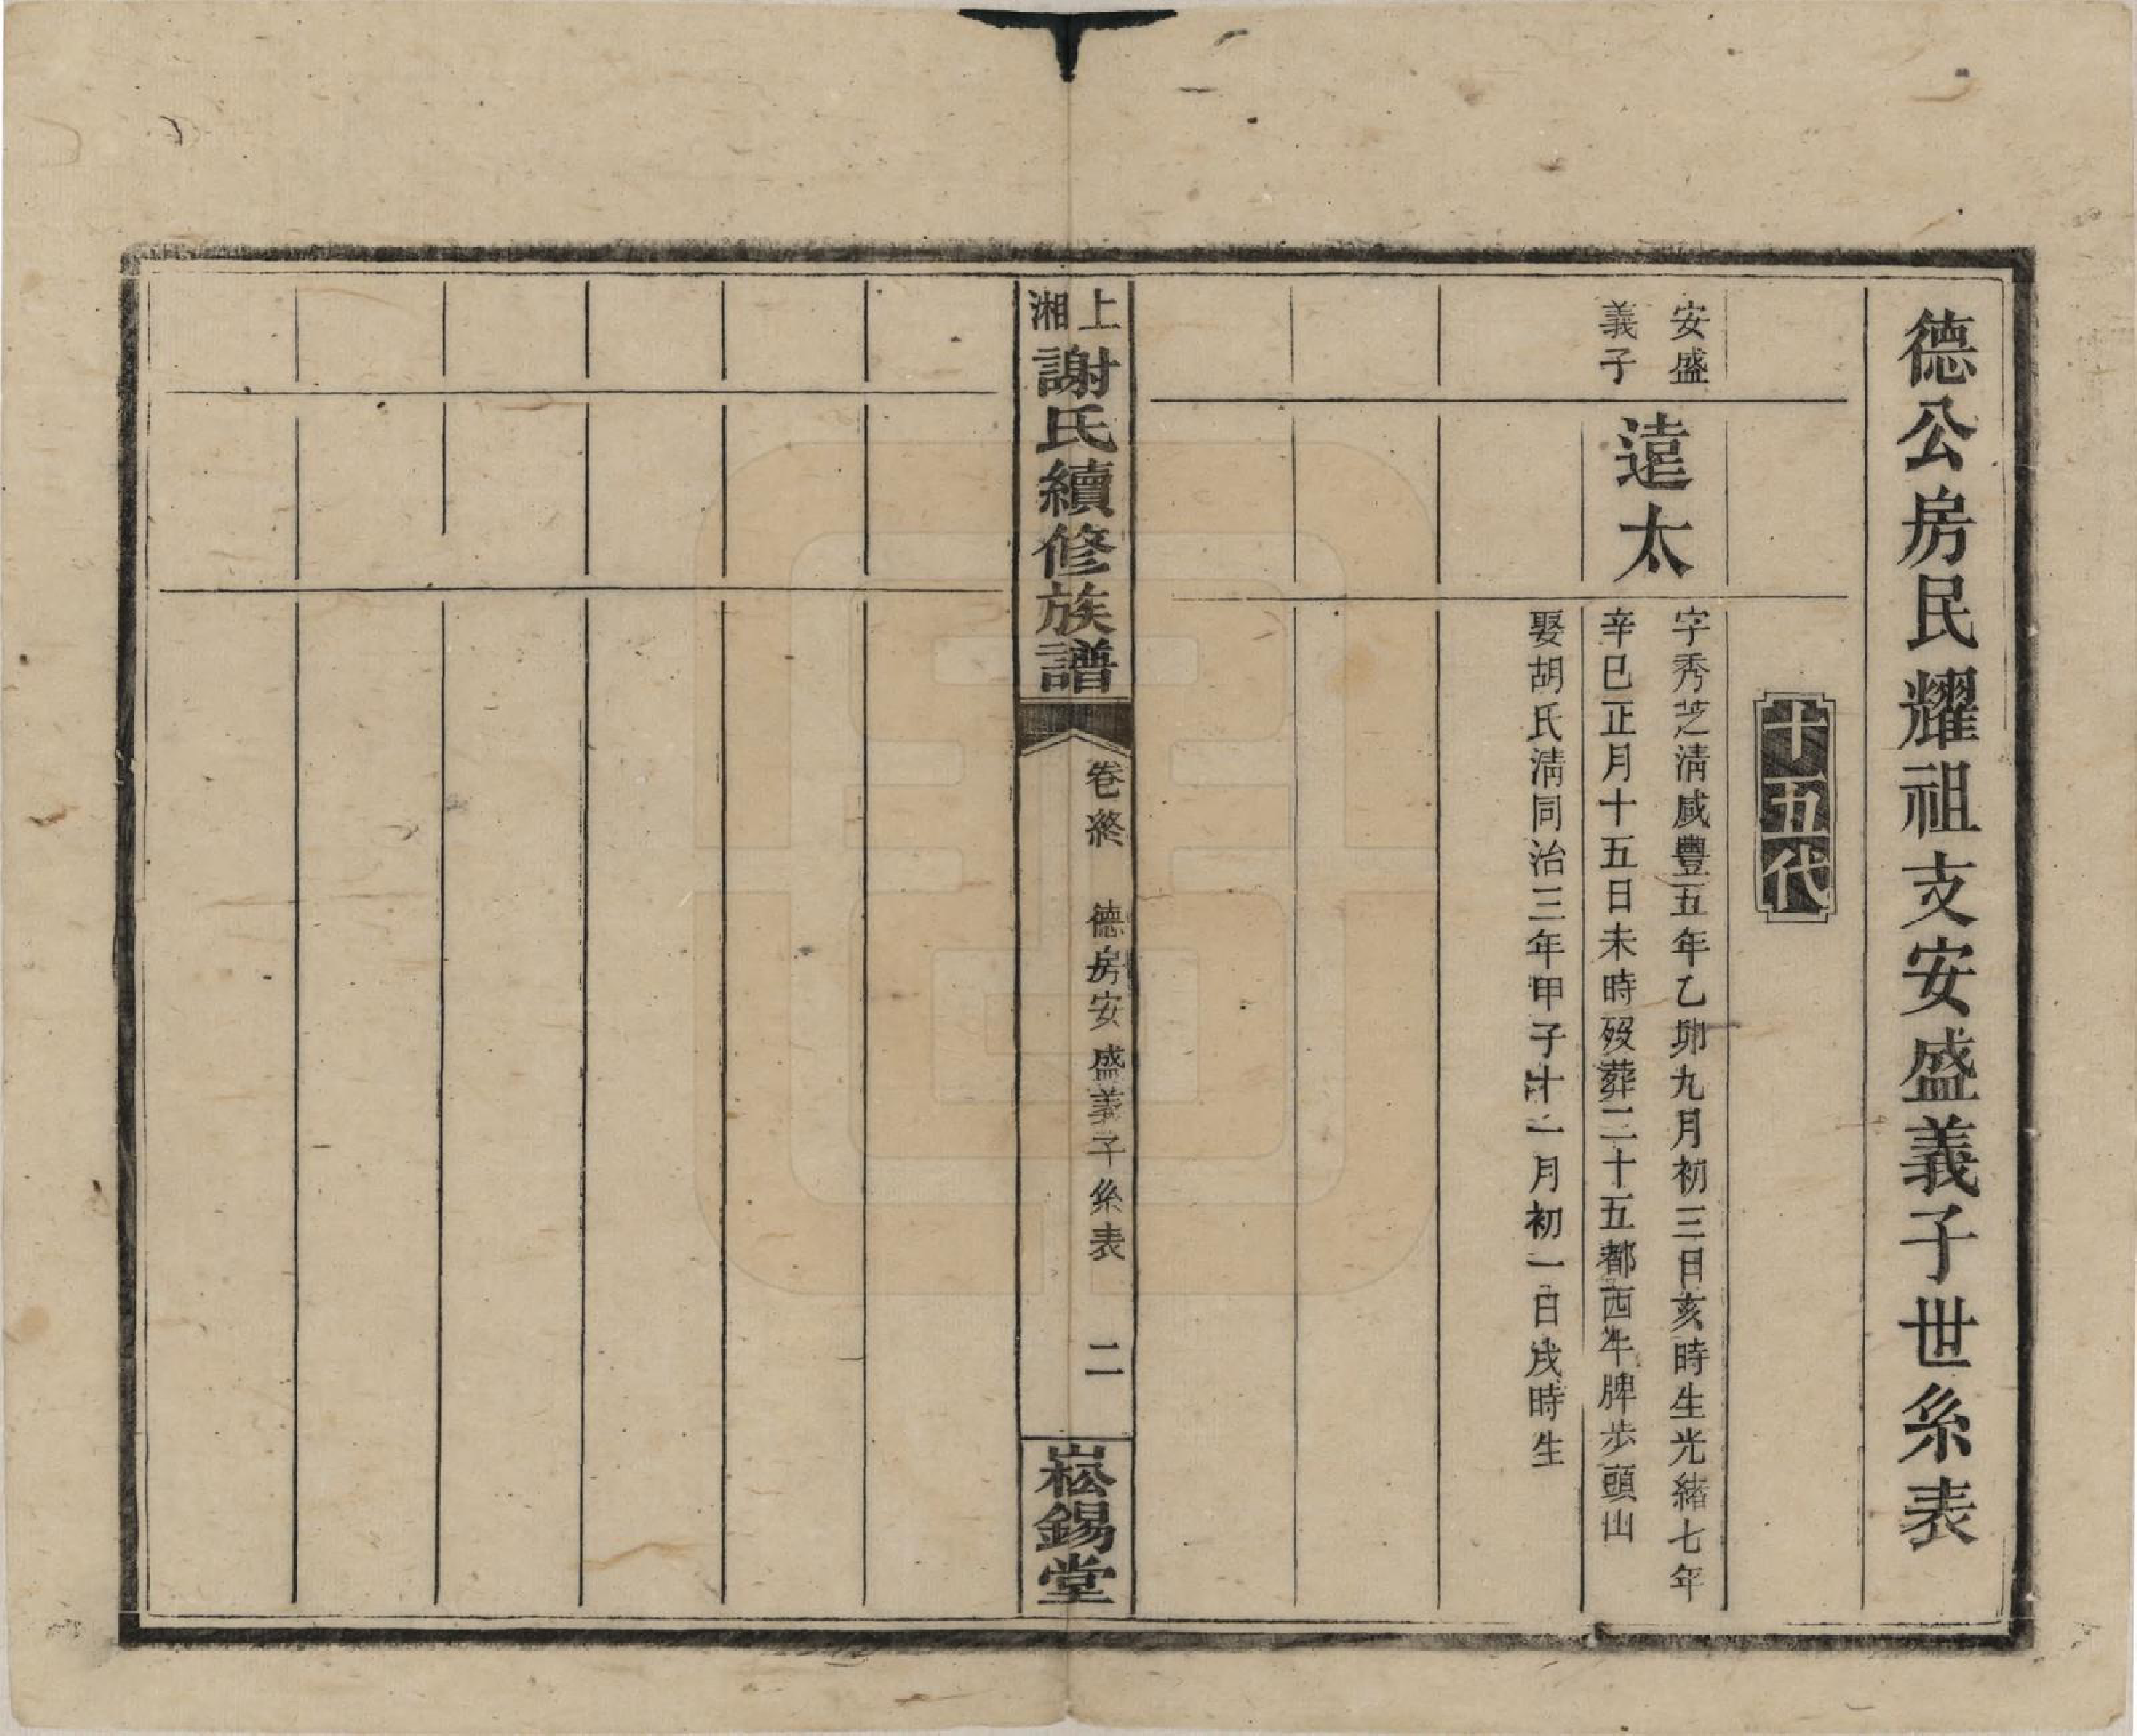 德公房民耀祖支安盛義子世系表
十五代
安盛
義子
遠太
字秀芝淸咸豐五年乙卯九月初三日亥時生光緒七年
辛巳正月十五日未時歿葬二十五都西牛脾步頭山
娶胡氏淸同治三年甲子十二月初一日戌時生
上湘
謝氏續修族譜
卷終
德房安盛義子系表
二
崧錫堂